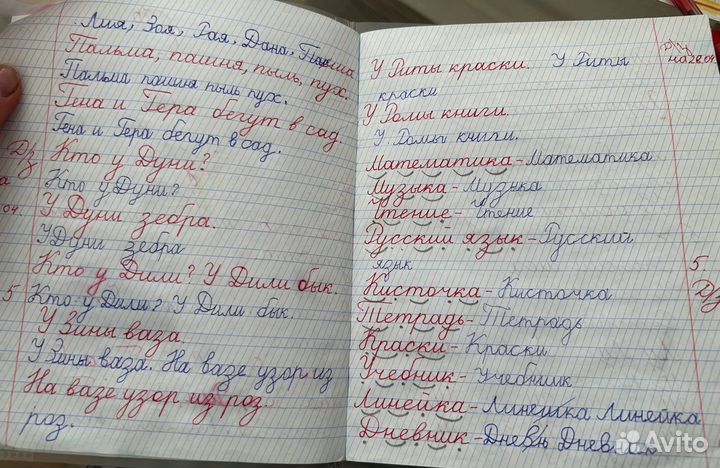 Лия, Зоя, Рая, Дана,
Пальма, пашня, пыль, пух.
Пальма пашня пыль пух.
Гена и Гера бегут в сад.
Гена и Гера бегут в сад.
Д/з Кто у Дуни?
Кто у Дуни?
04. У Дуни зебра.
У Дуни зебра
Кто у Дили? У Дили бык.
5 Кто у Дили? У Дили бык.
У Зины ваза.
У Зины ваза. На вазе узор из
На вазе узор из роз.
роз.
Д/з
У Риты краски. У Риты на 28.04
краски
У Ромы книги.
У Ромы книги.
Математика - Математика
Музыка - Музыка
Чтение - Чтение
Русский язык - Русский
язык 5
Кисточка - Кисточка Д/з
Тетрадь - Тетрадь
Краски - Краски
Учебник - Учебник
Линейка - Линейка Линейка
Дневник - Дневн Дневник
Avito